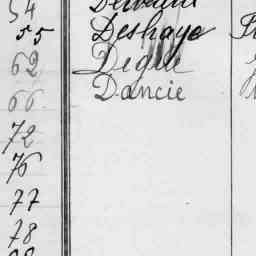 54
55 Deshaye
62 Digue
66 Dancie
72
76
77
78